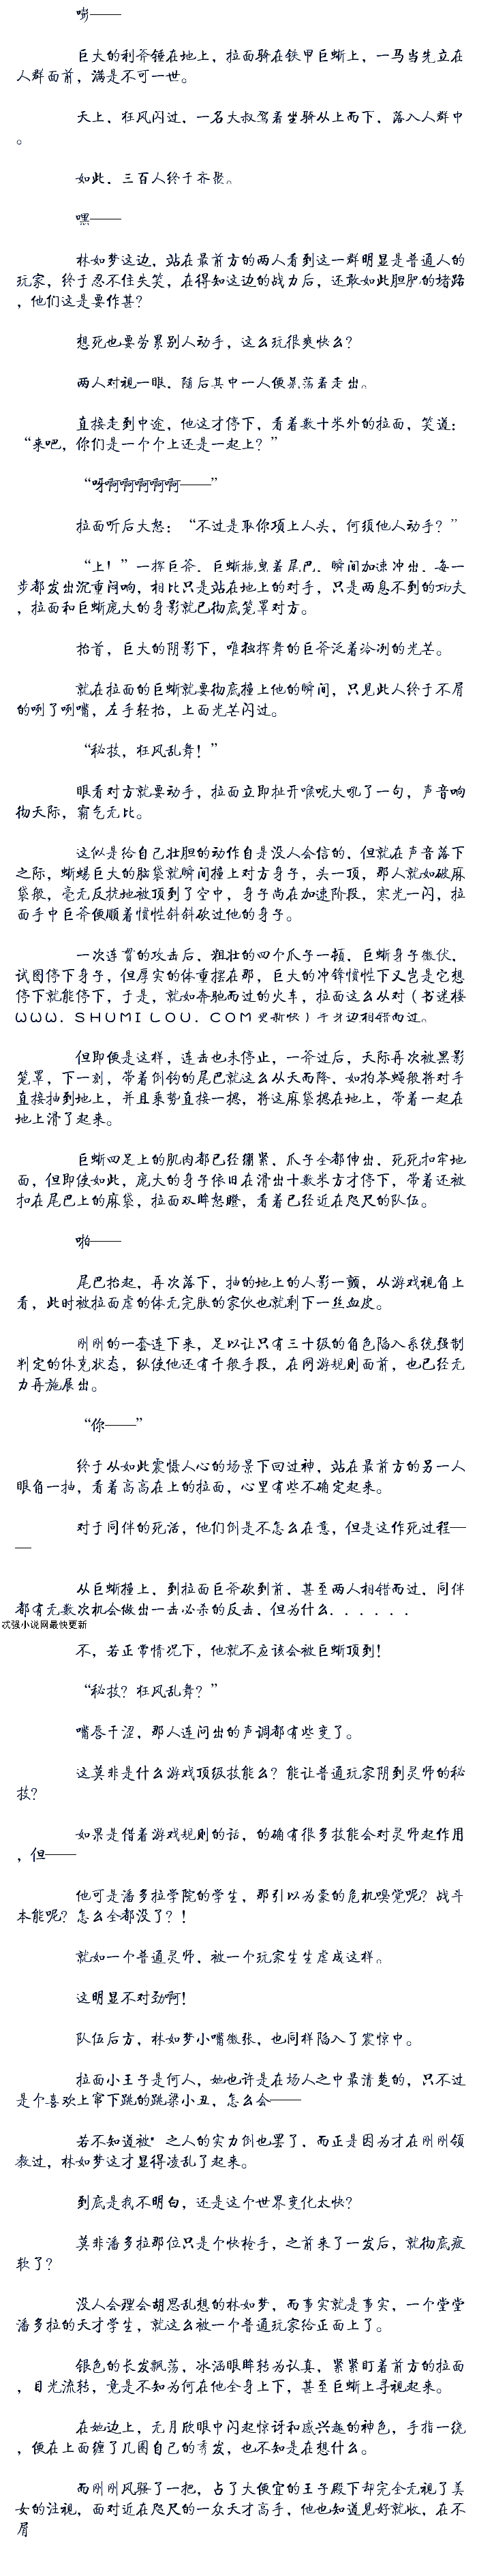 嘭——
巨大的利斧锤在地上，拉面骑在铁甲巨蜥上，一马当先立在
人群面前，满是不可一世。
天上，狂风闪过，一名大叔驾着坐骑从上而下，落入人群中
。
如此，三百人终于齐聚。
嘿——
林如梦这边，站在最前方的两人看到这一群明显是普通人的
玩家，终于忍不住失笑，在得知这边的战力后，还敢如此胆肥的堵路
，他们这是要作甚？
想死也要劳累别人动手，这么玩很爽快么？
两人对视一眼，随后其中一人便晃荡着走出。
直接走到中途，他这才停下，看着数十米外的拉面，笑道：
“来吧，你们是一个个上还是一起上？”
“呀啊啊啊啊啊——”
拉面听后大怒：“不过是取你项上人头，何须他人动手？”
“上！”一挥巨斧，巨蜥拖曳着尾巴，瞬间加速冲出，每一
步都发出沉重闷响，相比只是站在地上的对手，只是两息不到的功夫
，拉面和巨蜥庞大的身影就已彻底笼罩对方。
抬首，巨大的阴影下，唯独挥舞的巨斧泛着冷冽的光芒。
就在拉面的巨蜥就要彻底撞上他的瞬间，只见此人终于不屑
的咧了咧嘴，左手轻抬，上面光芒闪过。
“秘技，狂风乱舞！”
眼看对方就要动手，拉面立即扯开喉咙大吼了一句，声音响
彻天际，霸气无比。
这似是给自己壮胆的动作自是没人会信的，但就在声音落下
之际，蜥蜴巨大的脑袋就瞬间撞上对方身子，头一顶，那人就如破麻
袋般，毫无反抗地被顶到了空中，身子尚在加速阶段，寒光一闪，拉
面手中巨斧便顺着惯性斜斜砍过他的身子。
一次连贯的攻击后，粗壮的四个爪子一顿，巨蜥身子微伏，
试图停下身子，但厚实的体重摆在那，巨大的冲锋惯性下又岂是它想
停下就能停下，于是，就如奔驰而过的火车，拉面这么从对（书迷楼
ＷＷＷ．ＳＨＵＭＩＬＯＵ．ＣＯＭ更新快）手身边相错而过。
但即便是这样，连击也未停止，一斧过后，天际再次被黑影
笼罩，下一刻，带着倒钩的尾巴就这么从天而降，如拍苍蝇般将对手
直接抽到地上，并且乘势直接一摁，将这麻袋摁在地上，带着一起在
地上滑了起来。
巨蜥四足上的肌肉都已经绷紧，爪子全都伸出，死死扣牢地
面，但即使如此，庞大的身子依旧在滑出十数米方才停下，带着还被
扣在尾巴上的麻袋，拉面双眸怒瞪，看着已经近在咫尺的队伍。
啪——
尾巴抬起，再次落下，抽的地上的人影一颤，从游戏视角上
看，此时被拉面虐的体无完肤的家伙也就剩下一丝血皮。
刚刚的一套连下来，足以让只有三十级的角色陷入系统强制
判定的休克状态，纵使他还有千般手段，在网游规则面前，也已经无
力再施展出。
“你——”
终于从如此震慑人心的场景下回过神，站在最前方的另一人
眼角一抽，看着高高在上的拉面，心里有些不确定起来。
对于同伴的死活，他们倒是不怎么在意，但是这作死过程—
—
从巨蜥撞上，到拉面巨斧砍到前，甚至两人相错而过，同伴
都有无数次机会做出一击必杀的反击，但为什么．．．．．．
忒强小说网最快更新
不，若正常情况下，他就不应该会被巨蜥顶到！
“秘技？狂风乱舞？”
嘴唇干涩，那人连问出的声调都有些变了。
这莫非是什么游戏顶级技能么？能让普通玩家阴到灵师的秘
技？
如果是借着游戏规则的话，的确有很多技能会对灵师起作用
，但——
他可是潘多拉学院的学生，那引以为豪的危机嗅觉呢？战斗
本能呢？怎么全都没了？！
就如一个普通灵师，被一个玩家生生虐成这样。
这明显不对劲啊！
队伍后方，林如梦小嘴微张，也同样陷入了震惊中。
拉面小王子是何人，她也许是在场人之中最清楚的，只不过
是个喜欢上窜下跳的跳梁小丑，怎么会——
若不知道被* 之人的实力倒也罢了，而正是因为才在刚刚领
教过，林如梦这才显得凌乱了起来。
到底是我不明白，还是这个世界变化太快？
莫非潘多拉那位只是个快枪手，之前来了一发后，就彻底疲
软了？
没人会理会胡思乱想的林如梦，而事实就是事实，一个堂堂
潘多拉的天才学生，就这么被一个普通玩家给正面上了。
银色的长发飘荡，冰涵眼眸转为认真，紧紧盯着前方的拉面
，目光流转，竟是不知为何在他全身上下，甚至巨蜥上寻视起来。
在她边上，无月欣眼中闪起惊讶和感兴趣的神色，手指一绕
，便在上面缠了几圈自己的秀发，也不知是在想什么。
而刚刚风骚了一把，占了大便宜的王子殿下却完全无视了美
女的注视，面对近在咫尺的一众天才高手，他也知道见好就收，在不
屑